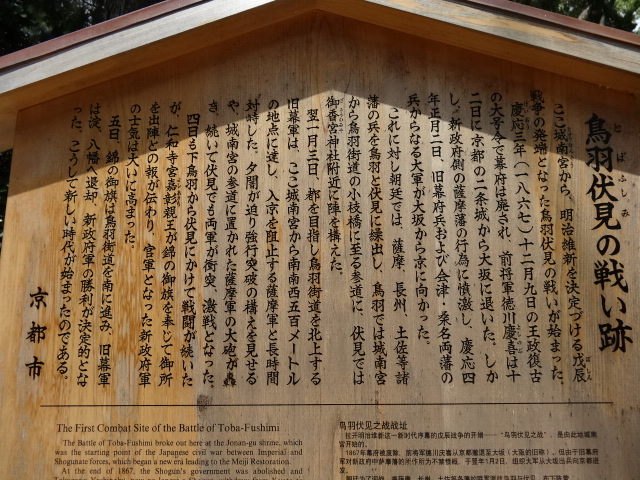 鳥羽伏見の戦い跡
とばふしみ
ここ城南宮から、明治維新を決定づける戊辰
ぼしん
戦争の発端となった鳥羽伏見の戦いが始まった。
慶応三年(一八六七)十二月九日の王政復古
の大号令で幕府は廃され、前将軍徳川慶喜は十
二日に京都の二条城から大坂に退いた。しか
し、新政府側の薩摩藩の行為に憤激し、慶応四
年正月二日、旧幕府兵および会津・桑名両藩の
兵からなる大軍が大坂から京に向かった。
これに対し朝廷では、薩摩、長州、土佐等諸
藩の兵を鳥羽と伏見に繰出し、鳥羽では城南宮
から鳥羽街道の小枝橋に至る参道に、伏見では
御香宮神社附近に陣を構えた。
翌一月三日、都を目指し鳥羽街道を北上する
旧幕軍は、ここ城南宮から南南西五百メートル
の地点に達し、入京を阻止する薩摩軍と長時間
対峙した。夕闇が迫り強行突破の構えを見せる
や、城南宮の参道に置かれた薩摩軍の大砲が轟
き、続いて伏見でも両軍が衝突、激戦となった。
四日も下鳥羽から伏見にかけて戦闘が続いた
が、仁和寺宮嘉彰親王が錦の御旗を奉じて御所
を出陣との報が伝わり、官軍となった新政府軍
の士気は大いに高まった。
五日、錦の御旗は鳥羽街道を南に進み、旧幕軍
は淀、八幡へ退却、新政府軍の勝利が決定的とな
った。こうして新しい時代が始まったのである。
京都市
The First Combat Site of the Battle of Toba-Fushimi
The Battle of Toba-Fushimi broke out here at the Jonan-gu shrine, which
was the starting point of the Japanese civil war between Imperial and
Shogunate forces, which began a new era leading to the Meiji Restoration.
At the end of 1867, the Shogun's government was abolished and
鸟羽伏见之战战址
拉开明治维新这一新时代序幕的戊辰战争的开端——“鸟羽伏见之战”,是由此地城南
宫开始的。